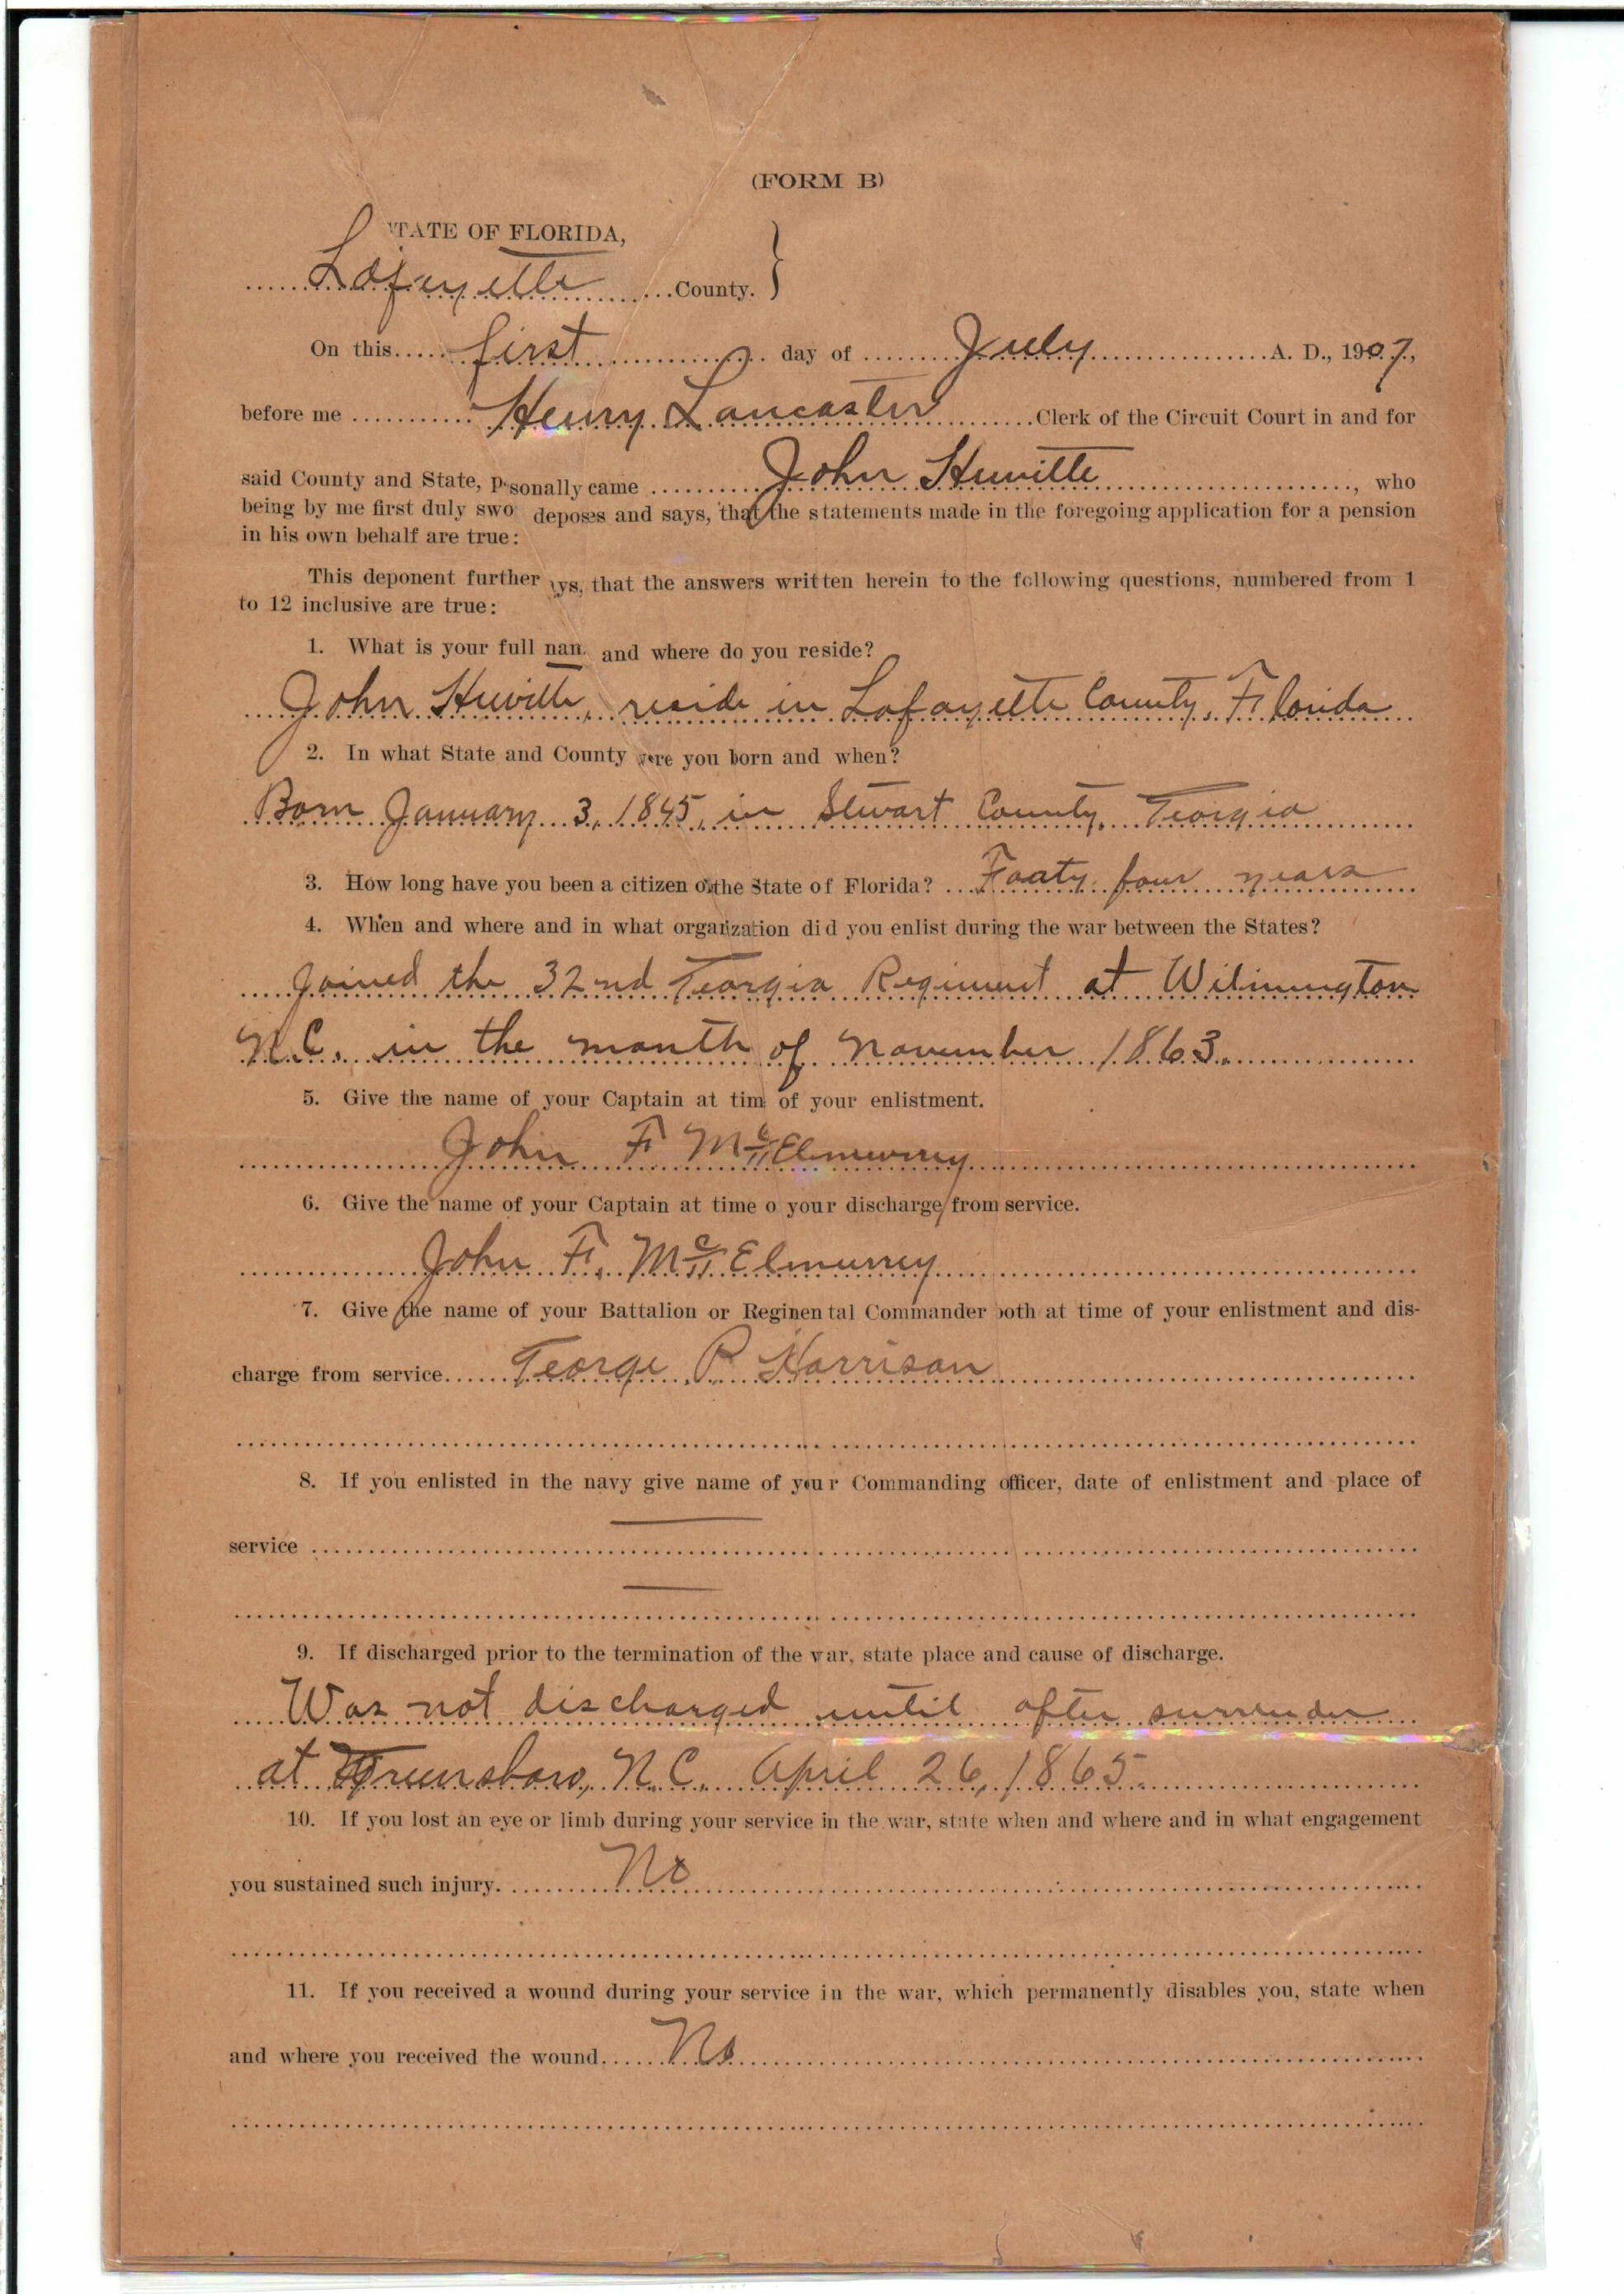 (FORM B)
TATE OF FLORIDA,
Lafayette County.
On this first day of July A. D., 1907,
before me Henry Lancaster Clerk of the Circuit Court in and for
said County and State, p sonally came John Hewitte, who
being by me first duly swo deposes and says, that the statements made in the foregoing application for a pension
in his own behalf are true:
This deponent further ys, that the answers written herein to the following questions, numbered from 1
to 12 inclusive are true:
1. What is your full nam and where do you reside?
John Hewitte, reside in Lafayette County, Florida
2. In what State and County were you born and when?
Born January 3, 1845, in Stewart County, Georgia
3. How long have you been a citizen of the State of Florida? Foaty four years
4. When and where and in what organization did you enlist during the war between the States?
Joined the 32nd Georgia Regiment at Wilmington
N.C. in the month of November 1863.
5. Give the name of your Captain at tim of your enlistment.
John F McElmurrey
6. Give the name of your Captain at time o your discharge from service.
John F. McElmurrey
7. Give the name of your Battalion or Regimental Commander both at time of your enlistment and dis-
charge from service George P. Harrison
8. If you enlisted in the navy give name of your Commanding officer, date of enlistment and place of
service
9. If discharged prior to the termination of the war, state place and cause of discharge.
Was not discharged until after surrender
at Greensboro, N.C. April 26, 1865
10. If you lost an eye or limb during your service in the war, state when and where and in what engagement
you sustained such injury. No
11. If you received a wound during your service in the war, which permanently disables you, state when
and where you received the wound. No